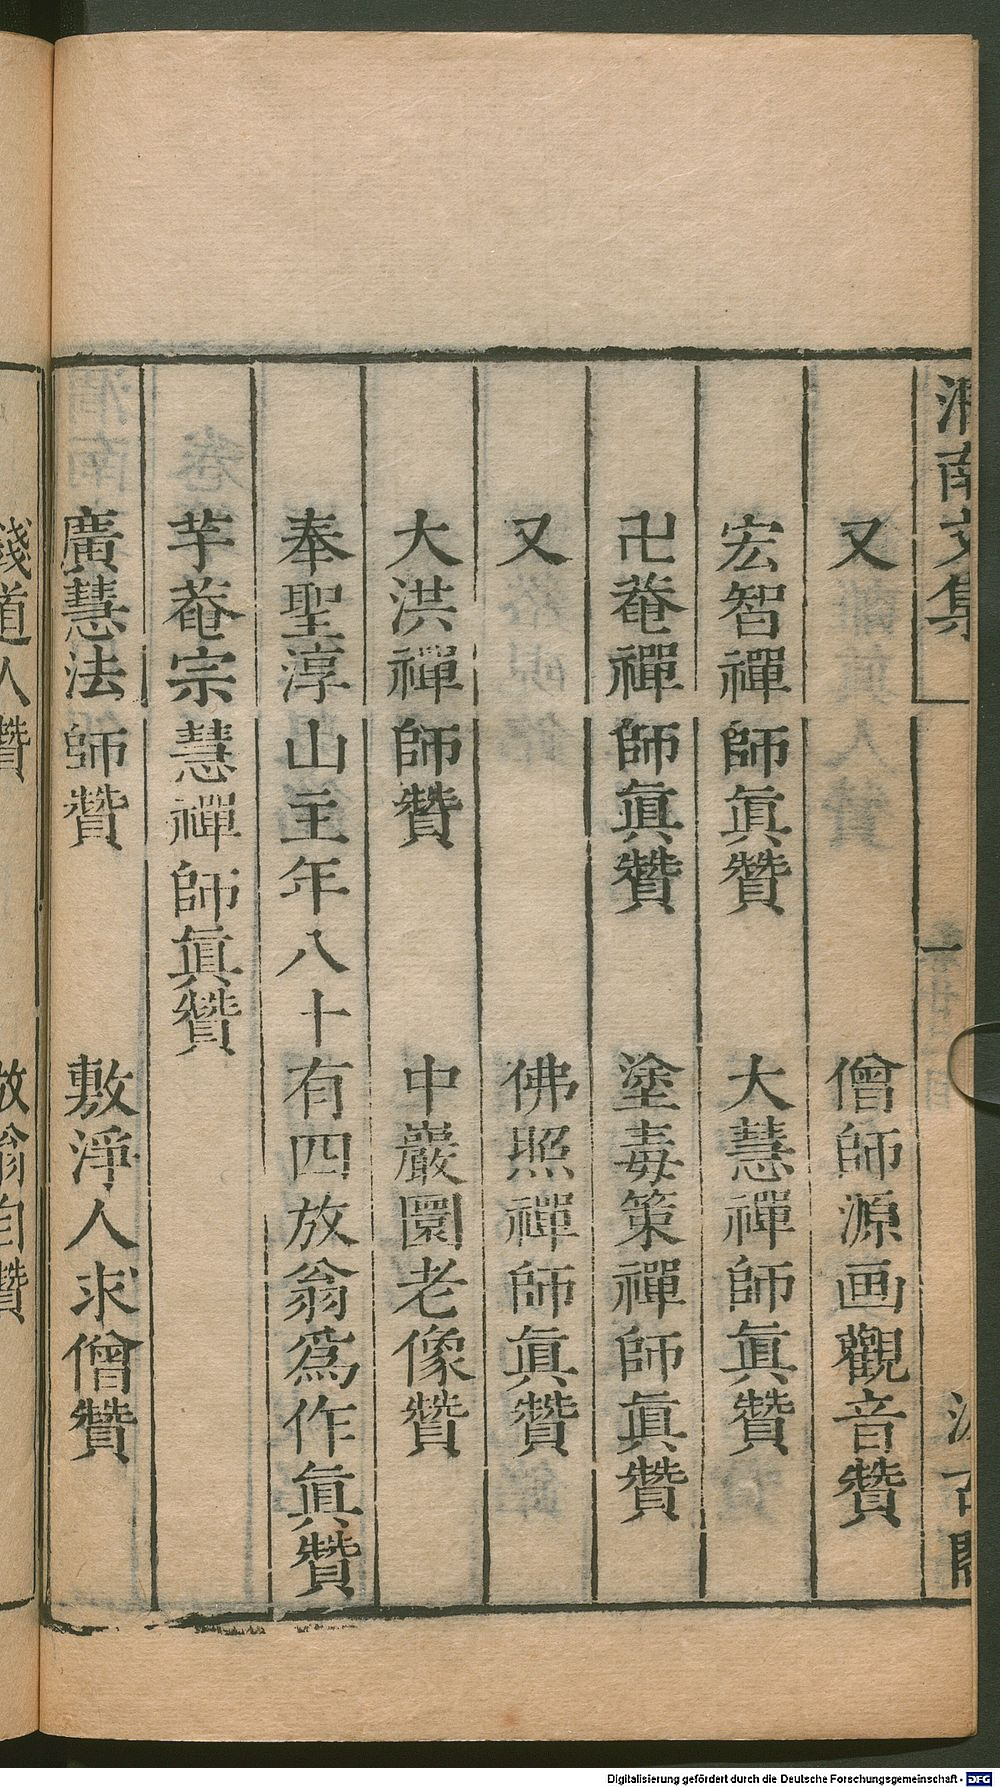 渭南文集
一
汲古閣
又　僧師源画觀音贊
宏智禪師眞贊　大慧禪師眞贊
卍菴禪師眞贊　塗毒策禪師眞贊
又　佛照禪師眞贊
大洪禪師贊　中巖圜老像贊
奉聖淳山主年八十有四放翁爲作眞贊
芋菴宗慧禪師眞贊
廣慧法師贊　敷淨人求僧贊
錢道人贊　放翁自贊
Digitalisierung gefördert durch die Deutsche Forschungsgemeinschaft - DFG